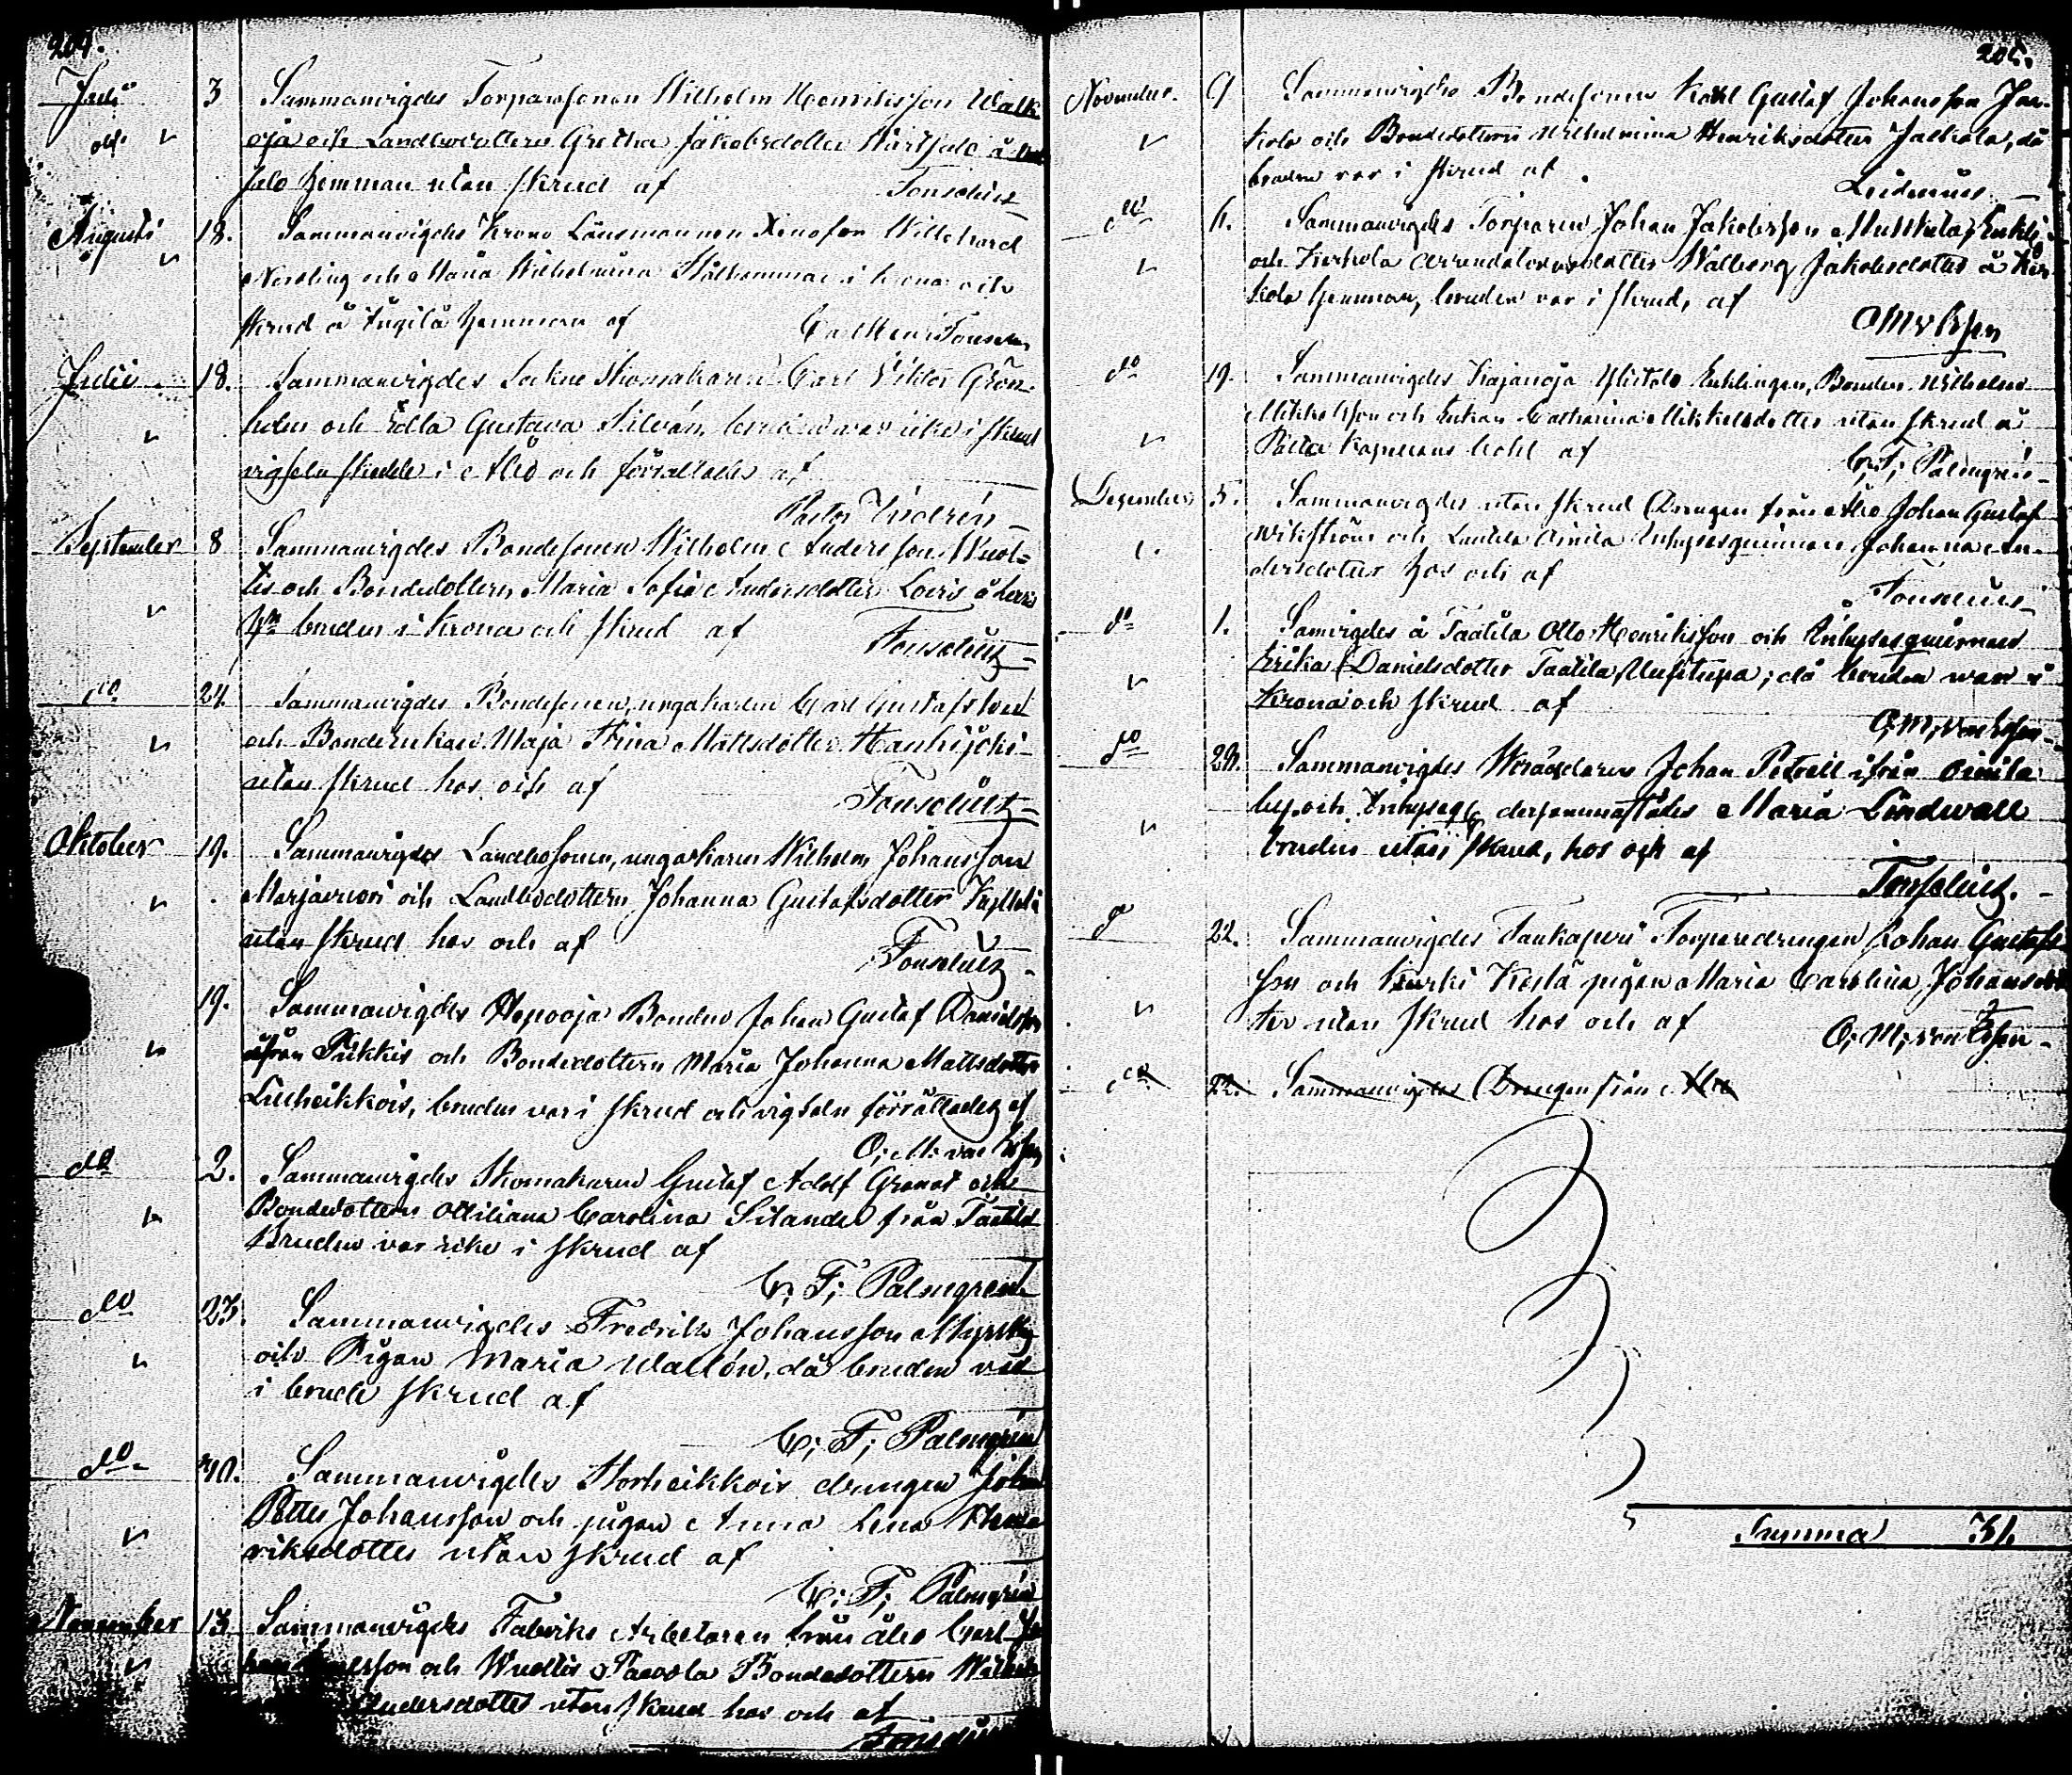 204.
Julii 3 Sammanvigdes Torparesonen Wilhelm Henriksson Walk
oja och Landbodottern Gretha Jakobsdotter
hemman utan skrud af
Fonselius
Augusti 18. Sammanvigdes Krono Länsmannen Xenofon Willehard
Nordling och Maria Wilhelmina Stålhammar i krona och
skrud å hemman af
Fonselius
Julii 18. Sammanvigdes Sockne Skomakaren Carl Viktor Grön
holm och Edla Gustava Silvén, bruden var icke i skrud
vigseln skedde i Åbo och förrättades af
Pastor
September 8 Sammanvigdes Bondesonen Wilhelm Andersson Wuol-
tis och Bondedottern Maria Sofia Andersdotter Loris å
bruden i krona och skrud af
Fonselius
do 24. Sammanvigdes Bondesonen, ungakarlen Carl Gustafsson
och Bondeenkan Maja Stina Mattsdotter Hanhijoki
utan skrud hos och af
Fonselius
Oktober 19. Sammanvigdes Landbosonen, ungakarlen Wilhelm Johansson
Marjavuori och Landbodottern Johanna Gustafsdotter
utan skrud hos och af
Fonselius
19. Sammanvigdes Hepooja Bonden Johan Gustaf Danielsson
ifrån Pikkis och Bondedottern Maria Johanna Mattsdotter
Liuheikkois, bruden var i skrud och vigseln förrättades af
O. M. von Essen
do 2. Sammanvigdes Skomakaren Gustaf Adolf Granat och
Bondedottern Ottiliana Carolina Silander från Taatila
Bruden var icke i skrud af
C. F. Palmgren
do 23. Sammanvigdes Fredrik Johansson
och Pigan Maria Wallén, då bruden var
i brude skrud af
C. F. Palmgren
do 30. Sammanvigdes Storheikkois drängen Johan
Petter Johansson och pigan Anna Lena Hen
riksdotter utan skrud af
C. F. Palmgren
November 13 Sammanvigdes Fabriks Arbetaren från Åbo Carl Jo
och Wuoltis Paavola Bondedottern
Andersdotter utan skrud hos och af
205.
November. 9 Sammanvigdes Bondesonen Karl Gustaf Johansson
kola och Bondedottern Wilhelmina Henriksdotter Jalkala, då
bruden var i skrud af
Lidenius
do 6. Sammanvigdes Torparen Johan Jakobsson
och Kerkola arrendatorsdotter Walborg Jakobsdotter å Ker
kola hemman, bruden var i skrud, af
O M v Essen
do 19. Sammanvigdes Kajanoja Enklingen, Bonden Wilhelm
Mikkelsson och Enkan Catharina Mikkelsdotter utan skrud å
Kapellans bohl af
C. F. Palmgren
December 5. Sammanvigdes utan skrud Drängen från Åbo Johan Gustaf
Wikström och Inhysesqvinnan Johanna An-
dersdotter hos och af
Fonselius
do 1. Samvigdes å Taatila Otto Henriksson och Inhysesqvinnan
Erika Danielsdotter Taatila Uusitupa; då bruden war i
krona och skrud af
O. M. von Essen
do 29. Sammanvigdes Skräddaren Johan Petrell ifrån Oinila
by och Inhyseqv. dersammastädes Maria Lindwall
bruden utan skrud, hos och af
Fonselius.
do 22. Sammanvigdes Torparedrengen Johan Gustafs
son och Kurki Kestä pigan Maria Carolina Johansdot
ter utan skrud hos och af
O. M. von Essen
do 22. Sammanvigdes Drengen från Åbo
Summa 31.